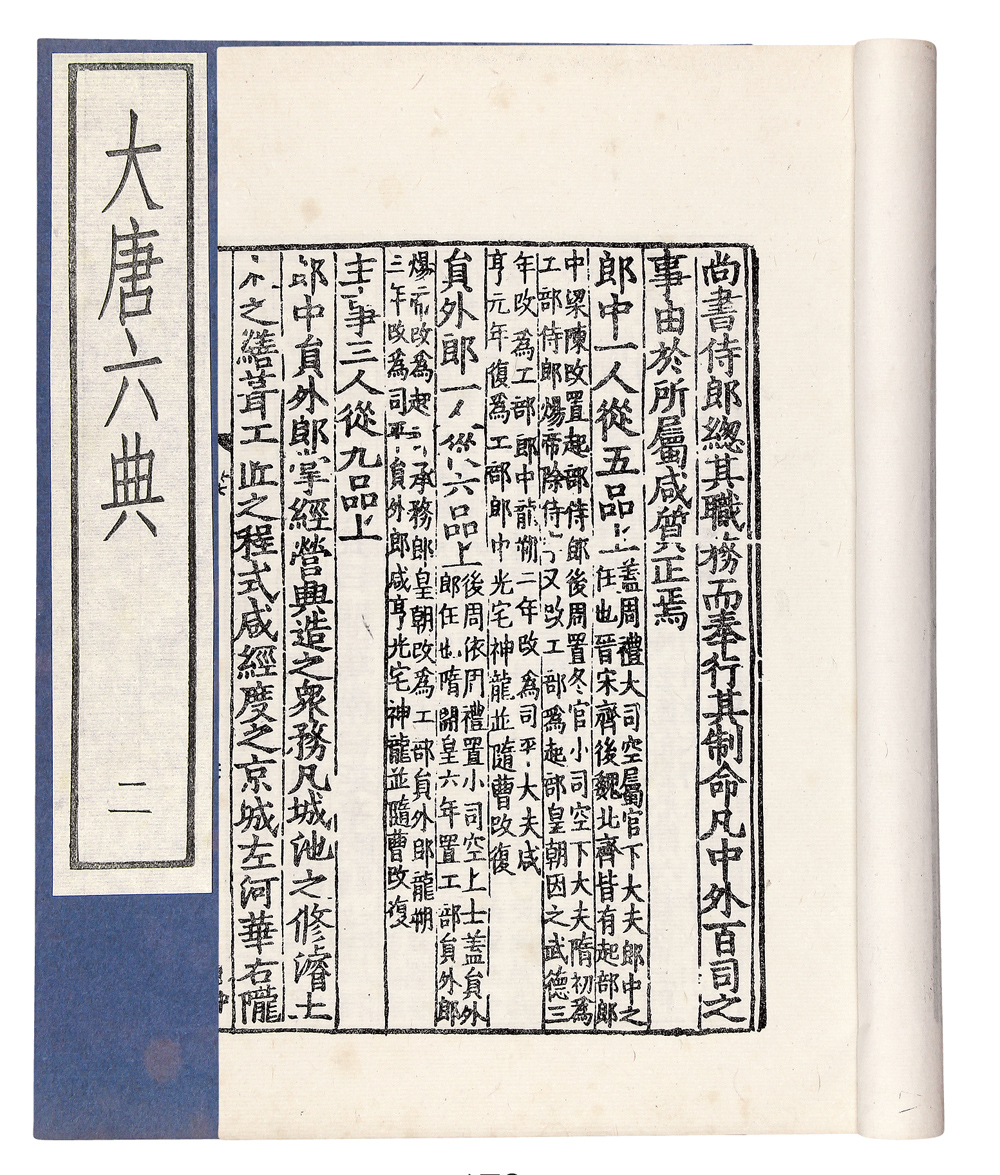 大唐六典 二
尚書侍郎總其職務而奉行其制命凡中外百司之
事由於所屬咸質正焉
郎中一人從五品上
蓋周禮大司空屬官下大夫郎中之
任也晉宋齊後魏北齊皆有起部郎
中梁陳改置起部侍郎後周置冬官小司空下大夫隋初為
工部侍郎煬帝除侍又改工部為起部皇朝因之武德三
年改為工部郎中龍朔二年改為司平大夫咸
亨元年復為工部郎中光宅神龍並隨曹改復
員外郎一人從六品上
後周依周禮置小司空上士蓋員外
郎任也隋開皇六年置工部員外郎
煬帝改為起部承務郎皇朝改為工部員外郎龍朔
三年改為司平員外郎咸亨光宅神龍並隨曹改復
主事三人從九品上
郎中員外郎掌經營興造之衆務凡城池之修濬土
木之繕葺工匠之程式咸經度之京城左河華右隴